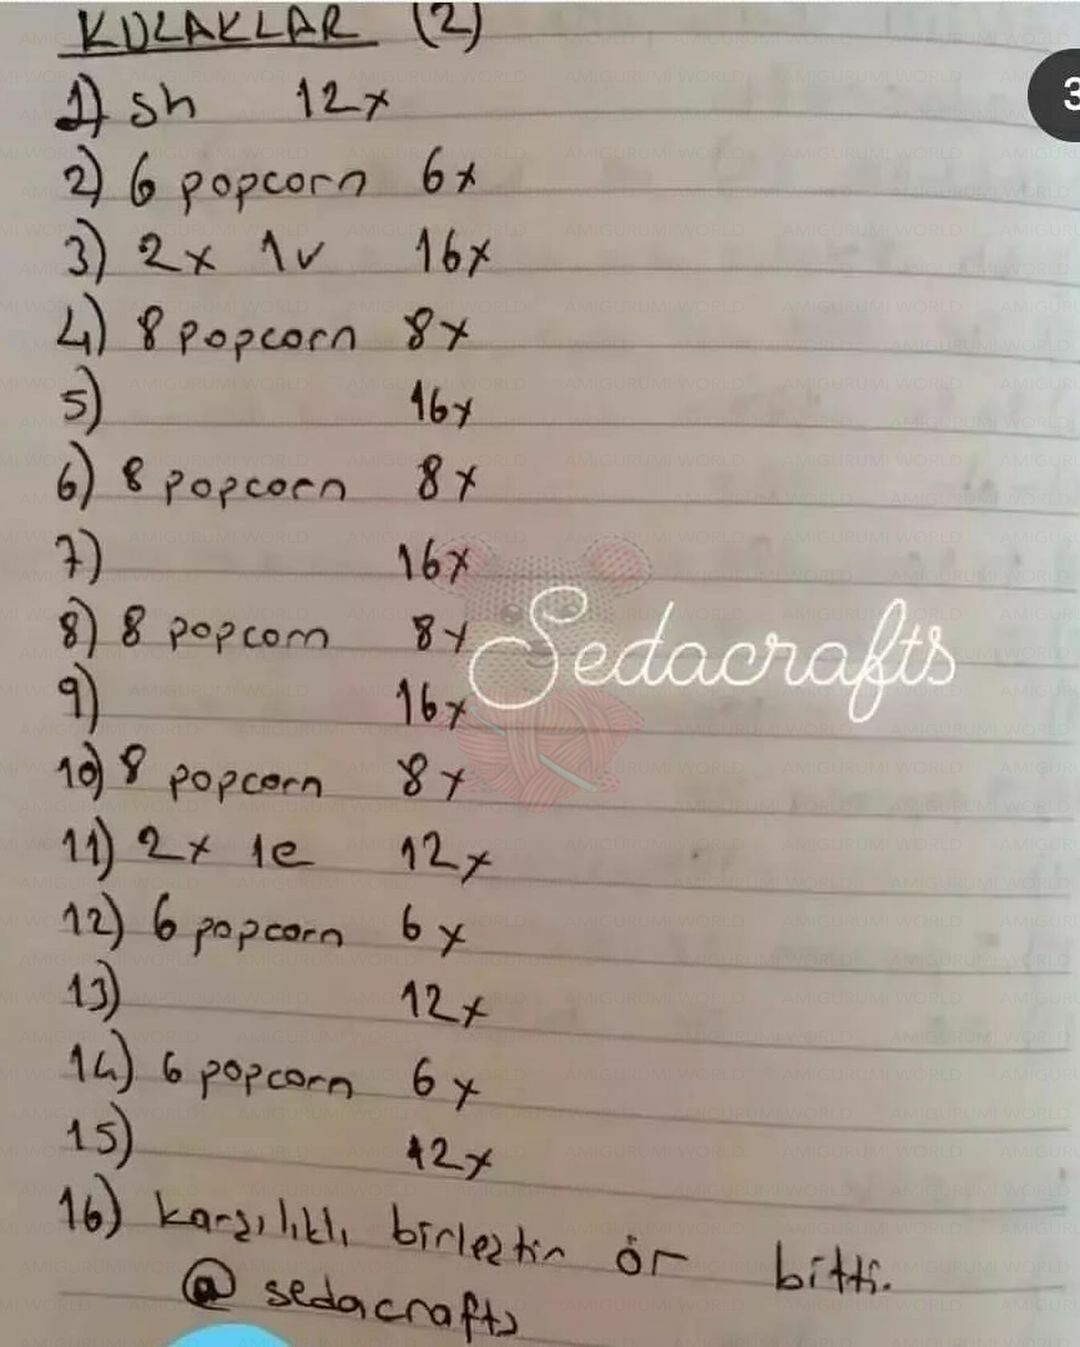 KULAKLAR (2)
1) sh 12x
2) 6 popcorn 6x
3) 2x 1v 16x
4) 8 popcorn 8x
5) 16x
6) 8 popcorn 8x
7) 16x
8) 8 popcorn 8x
Sedacrafts
9) 16x
10) 8 popcorn 8x
11) 2x 1e 12x
12) 6 popcorn 6x
13) 12x
14) 6 popcorn 6x
15) 12x
16) karşılıklı birleştir ör bitti.
@ sedacrafts
3
AMIGURUMI WORLD